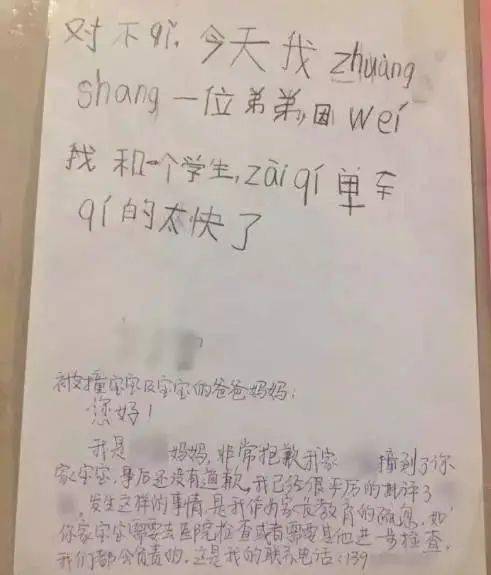 对不qǐ,今天我zhuàng
shang一位弟弟,因wei
我和一个学生,zài qí单车
qí的太快了
被撞宝宝及宝宝的爸爸妈妈:
您好!
我是 妈妈,非常抱歉我家 撞到了你
家宝宝,事后还没有道歉,我已经很严厉的批评了
,发生这样的事情,是我作为家长教育的疏忽,如
你家宝宝需要去医院检查或者需要其他进一步检查,
我们都会负责的,这是我的联系电话:139